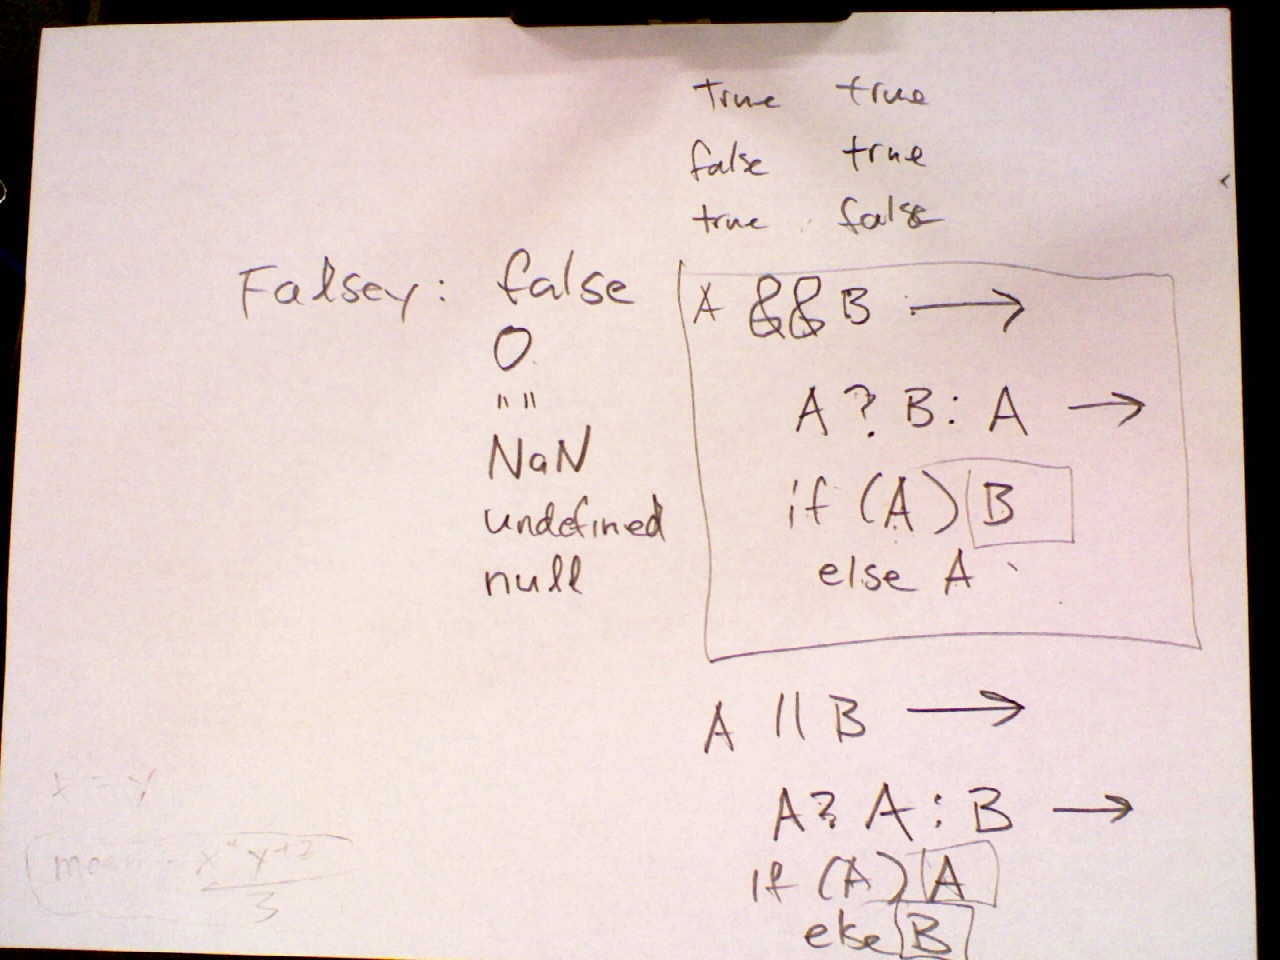 true true
false true
true false
Falsey: false
0
""
NaN
undefined
null
A && B →
A ? B : A →
if (A) B
else A
A || B →
A ? A : B →
if (A) A
else B
x = y
mean = x + y + z
3